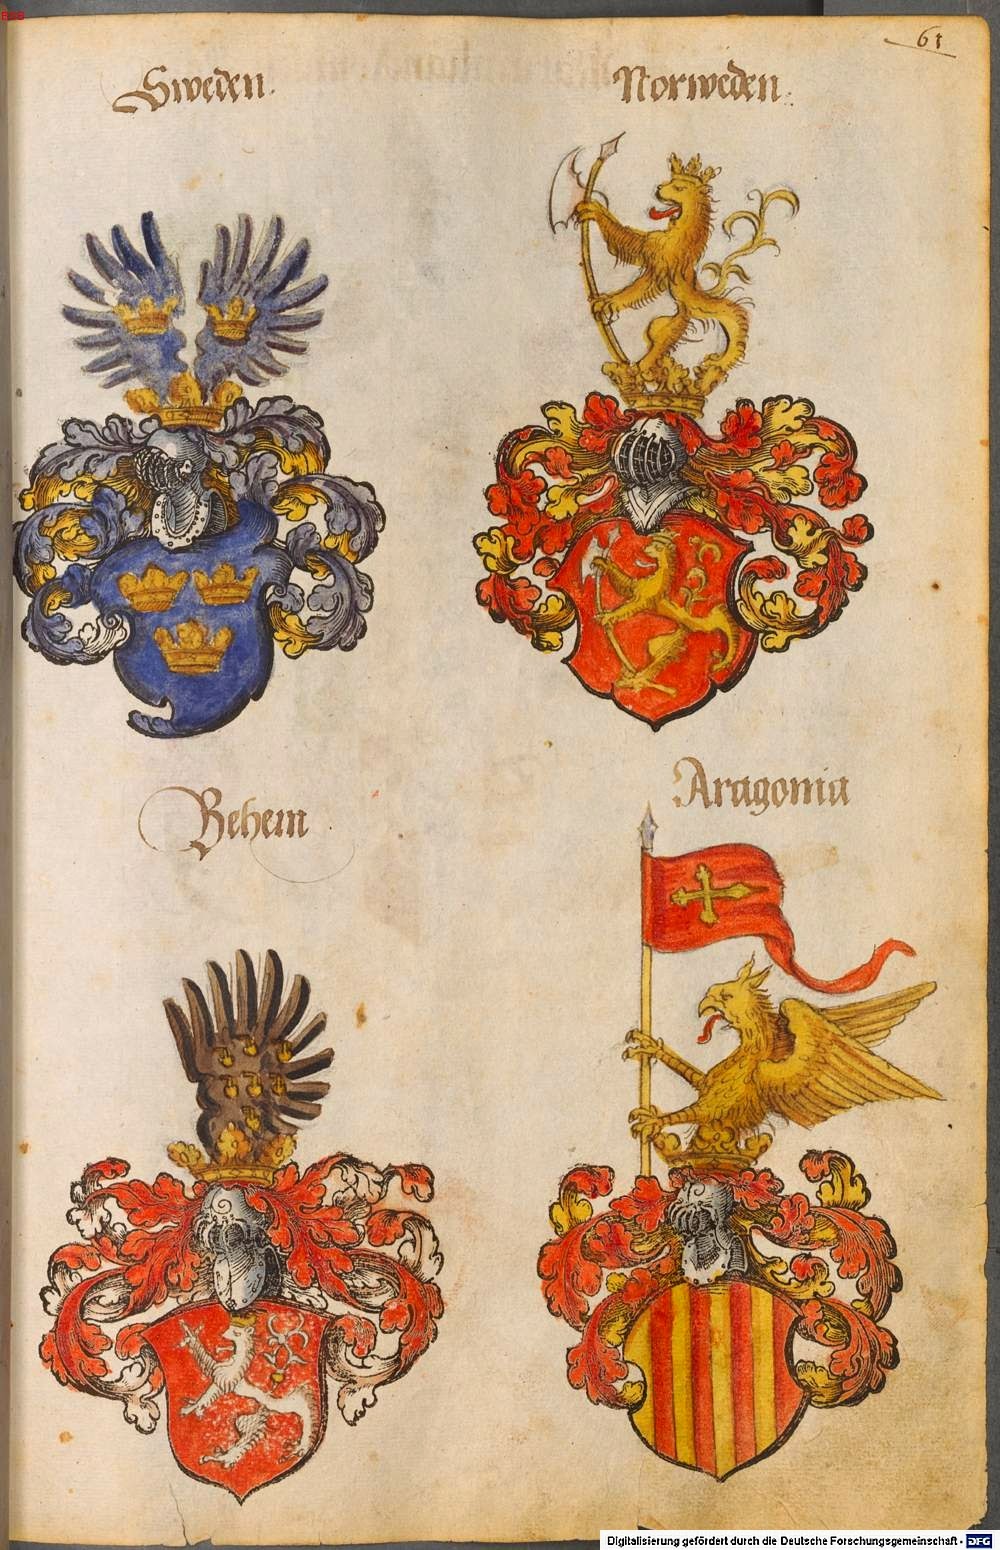 BSB
61
Sweden.
Norweden.
Behem
Aragonia
Digitalisierung gefördert durch die Deutsche Forschungsgemeinschaft - DFG